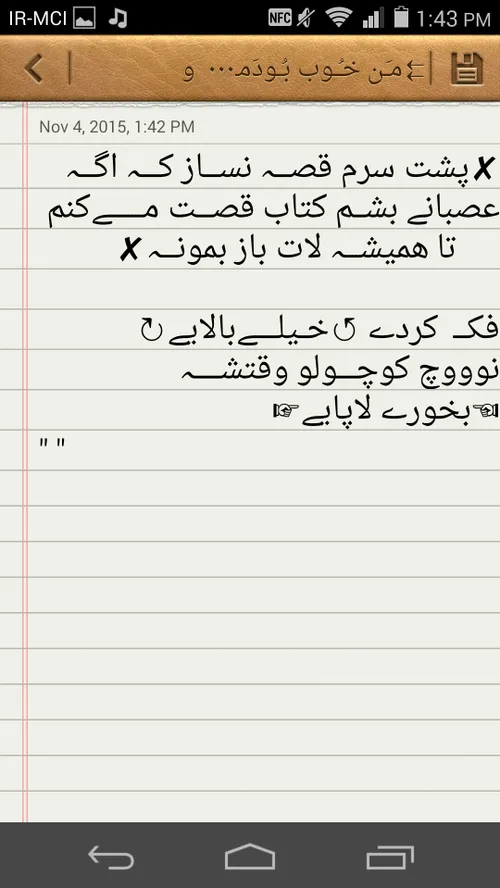 IR-MCI NFC 1:43 PM
⇇مَـن خـُوب بُـودَمـ... و
Nov 4, 2015, 1:42 PM
✘پشت سرم قصـه نسـاز کـه اگـه
عصبانے بشـم کتاب قصـت مــےکنم
تا همیشـه لات باز بمونـه✘
فکـ کردے↺خـیلــےبالایے↻
نوووچ کوچــولو وقتشــه
☜بخورے لاپایے☞
" "